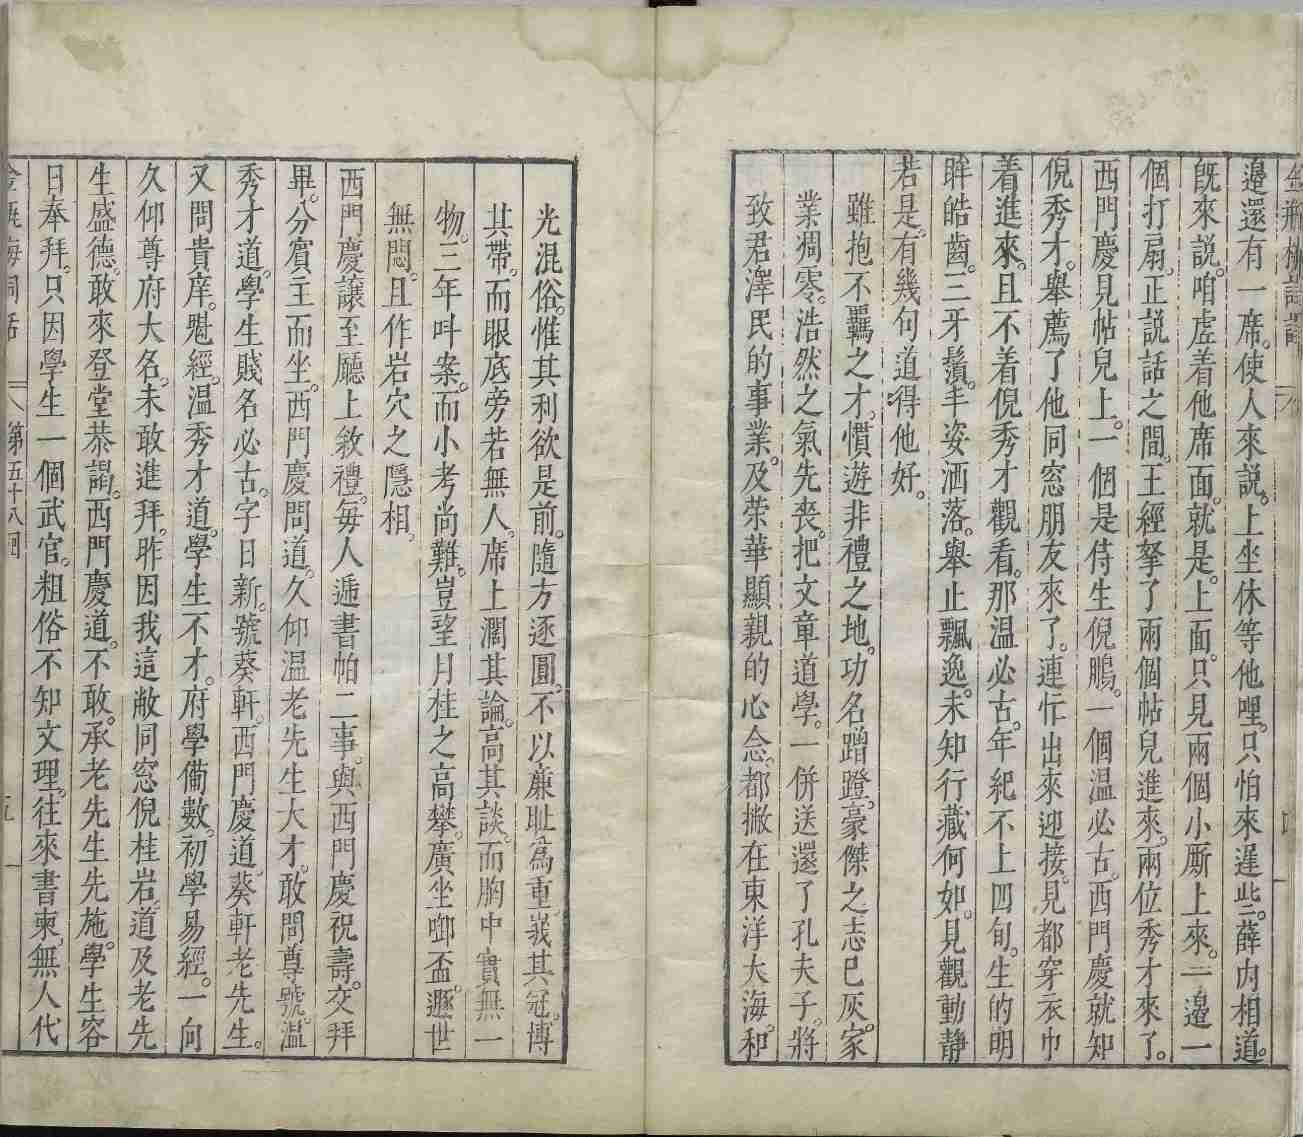 金瓶梅詞話
邉還有一席。使人來説。上坐休等他哩。只怕來遲些。薛内相道。
旣來説。咱虚着他席面。就是。上面。只見兩個小厮上來。一邉一
個打扇。正説話之間。王經拏了兩個帖兒進來。兩位秀才來了。
西門慶見帖兒上。一個是侍生倪鵬。一個温必古。西門慶就知
倪秀才。舉薦了他同窓朋友來了。連忙出來迎接。見都穿衣巾
着進來。且不着倪秀才觀看。那温必古。年紀不上四旬。生的明
眸皓齒。三牙鬚。丰姿洒落。舉止飄逸。未知行藏何如。見觀動静
若是。有幾句道得他好。
雖抱不羈之才。慣遊非禮之地。功名蹭蹬。豪傑之志已灰。家
業凋零。浩然之氣先喪。把文章道學。一併送還了孔夫子。將
致君澤民的事業。及荣華顯親的心念。都撇在東洋大海。和
光混俗。惟其利欲是前。隨方逐圓。不以亷耻爲重。峩其冠。博
其帶。而眼底旁若無人。席上濶其論。高其談。而胸中實無一
物。三年叫案。而小考尚難。豈望月桂之高攀。廣坐啣盃。遯世
無悶。且作岩穴之隱相。
西門慶讓至廳上敘禮。每人遞書帕二事。與西門慶祝壽。交拜
畢。分賓主而坐。西門慶問道。久仰温老先生大才。敢問尊號。温
秀才道。學生賤名必古。字日新。號葵軒。西門慶道。葵軒老先生。
又問貴庠。魁經。温秀才道。學生不才。府學備數。初學易經。一向
久仰尊府大名。未敢進拜。昨因我這敝同窓倪桂岩。道及老先
生盛德。敢來登堂恭謁。西門慶道。不敢。承老先生先施。學生容
日奉拜。只因學生一個武官。粗俗不知文理。往來書柬。無人代
金瓶梅詞話 第五十八回